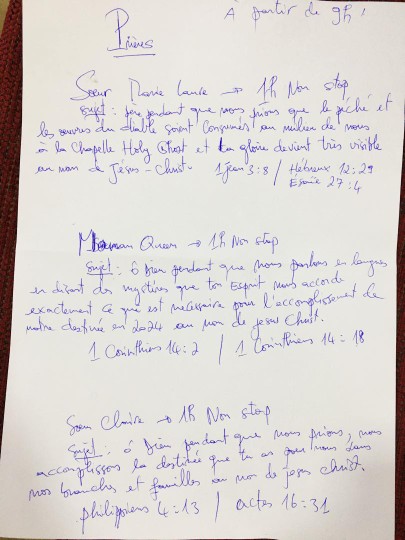 À partir de 9h !
Prières
Sœur Marie Laure → 1h Non stop
Sujet : père pendant que nous prions que le péché et
les œuvres du diable soient consumés au milieu de nous
à la Chapelle Holy Ghost et ta gloire devient très visible
au nom de Jésus-Christ. 1 Jean 3:8 / Hébreux 12:29
Ésaïe 27:4
Maman Queen → 1h Non stop
Sujet : ô Dieu pendant que nous parlons en langues
en disant des mystères que ton Esprit nous accorde
exactement ce qui est nécessaire pour l'accomplissement de
notre destinée en 2024 au nom de Jesus Christ.
1 Corinthiens 14:2 / 1 Corinthiens 14:18
Sœur Claire → 1h Non stop
Sujet : ô Dieu pendant que nous prions, nous
accomplissons la destinée que tu as pour nous dans
nos branches et familles au nom de Jesus Christ.
philippiens 4:13 / actes 16:31